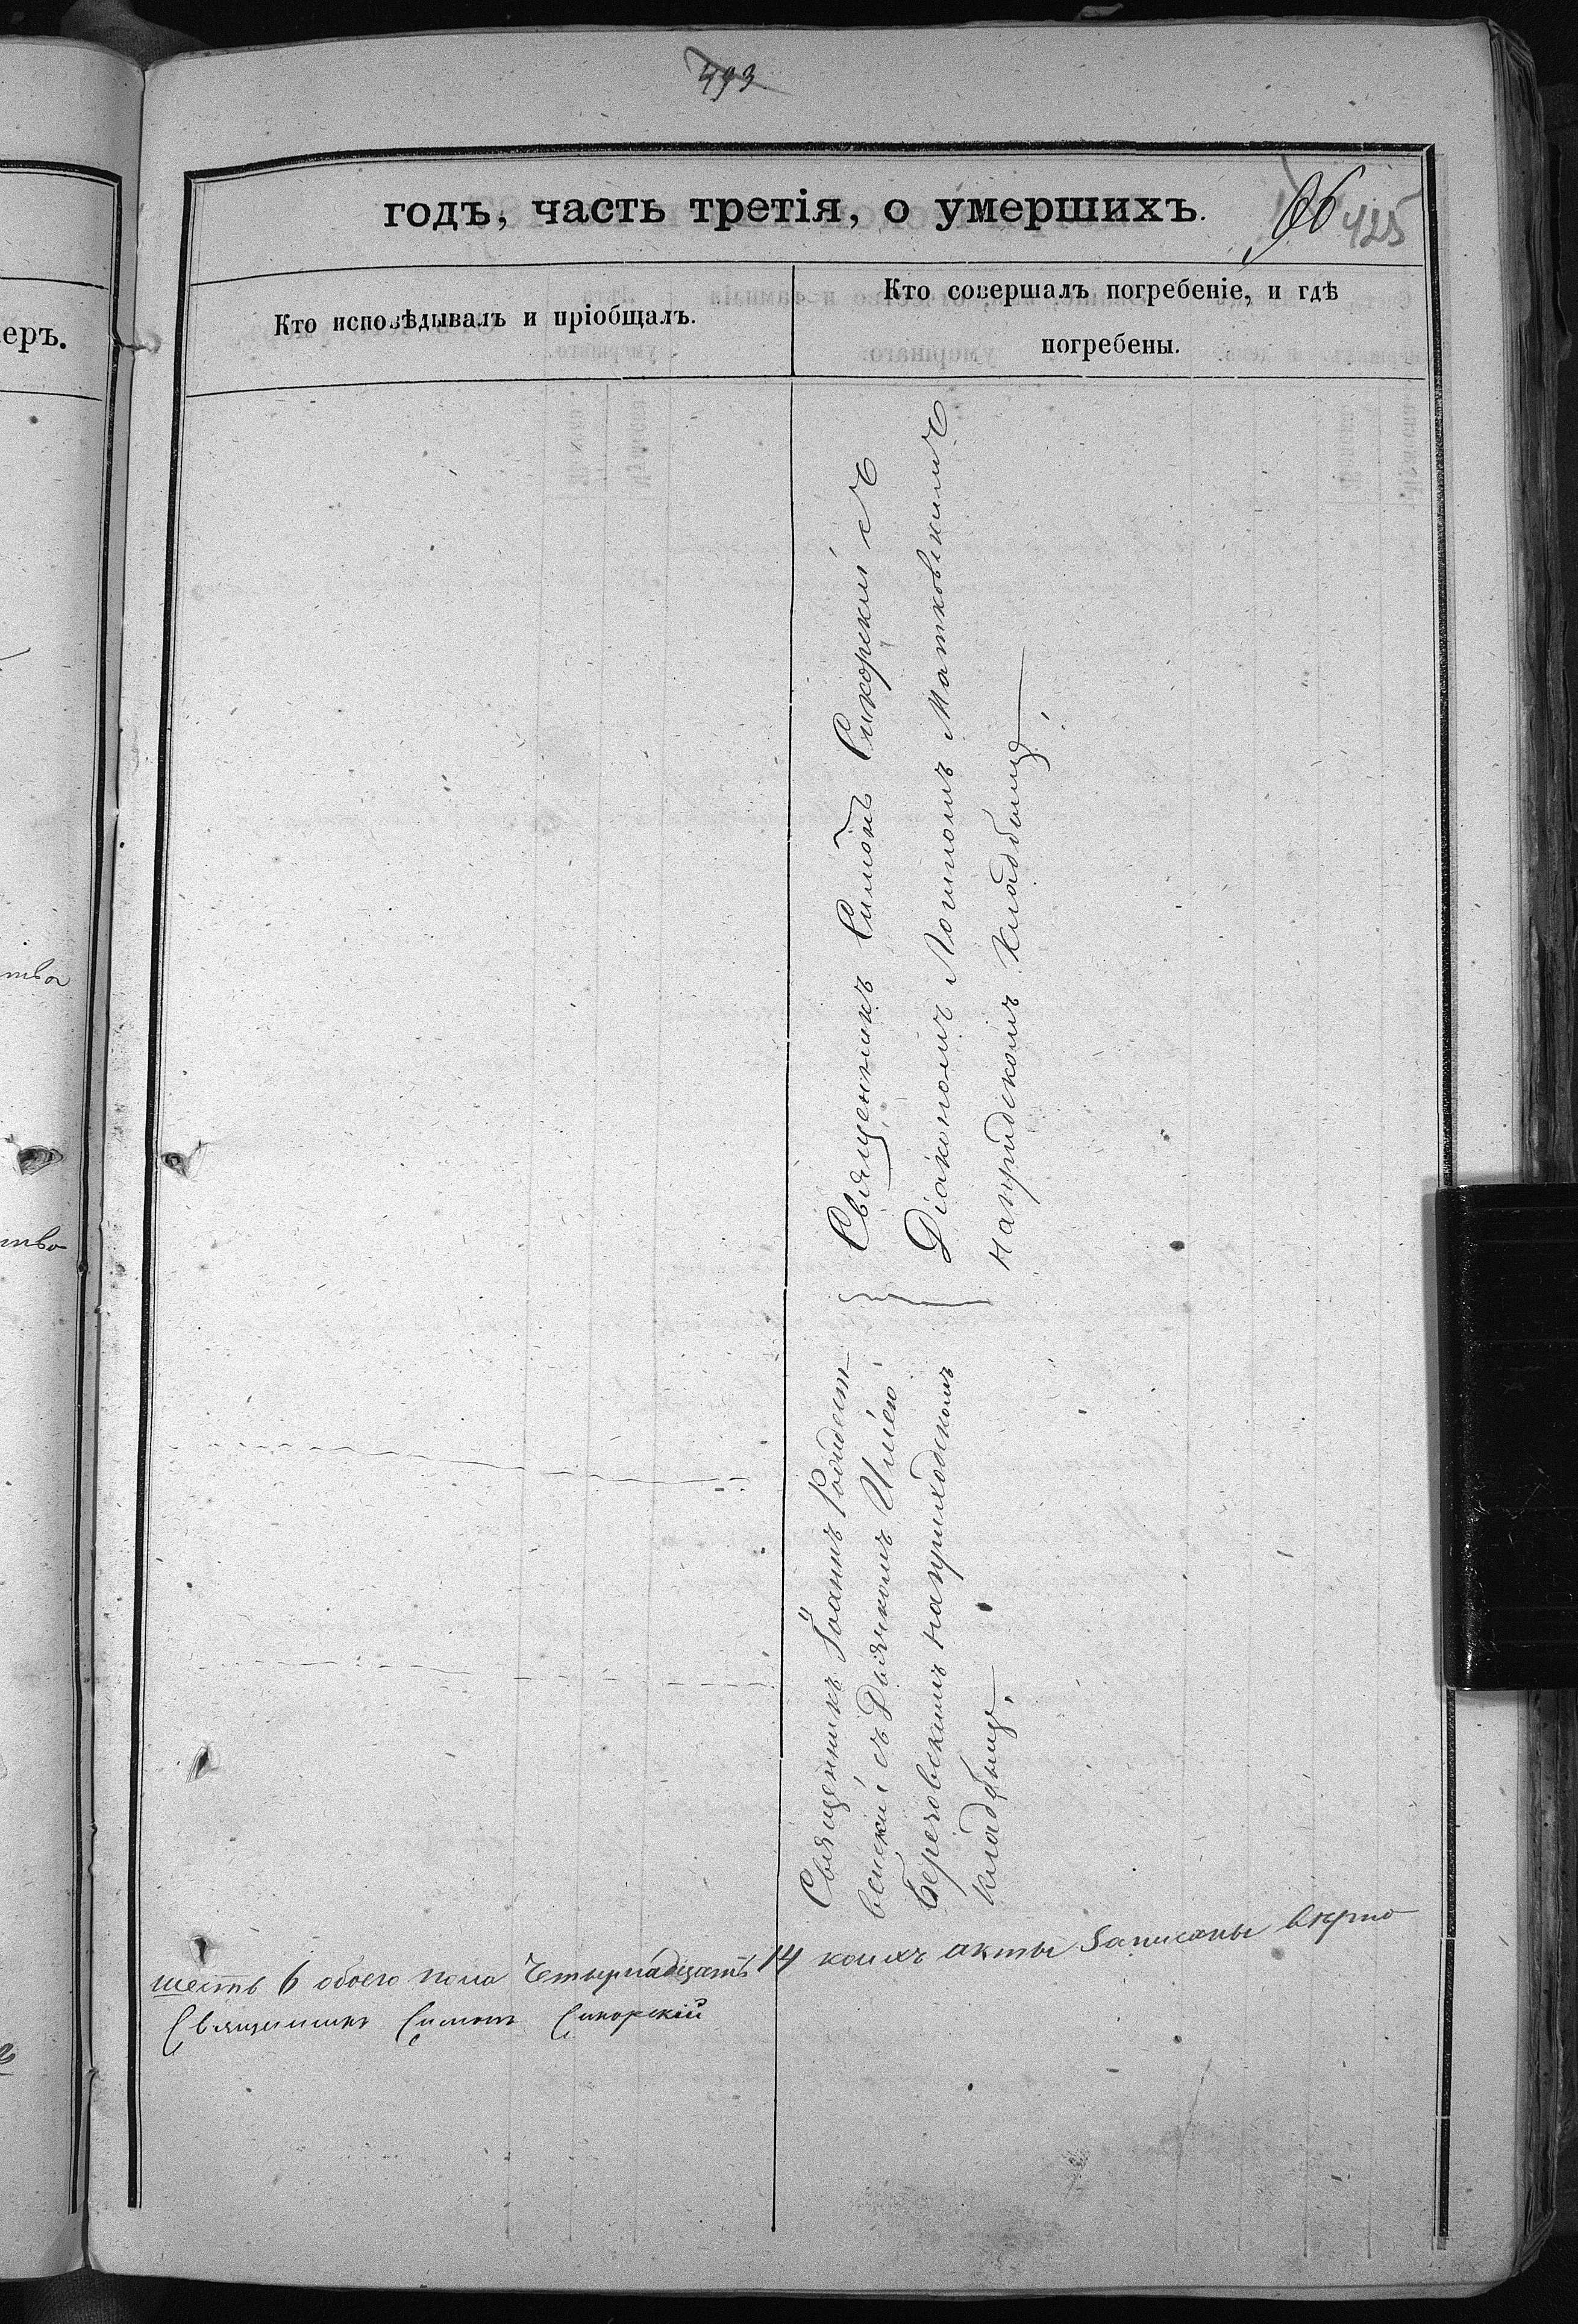 493
годъ, часть третія, о умершихъ.
425
еръ.
Кто исповѣдывалъ и пріобщалъ.
Кто совершалъ погребеніе, и гдѣ
погребены.
Священникъ Симонъ Сикорскій съ
Діакономъ Логиномъ Матковскимъ
на приходскомъ кладбищѣ.
Священникъ Іоаннъ Рождест
венскій съ Дьячкомъ Иліею
Березовскимъ на приходскомъ
кладбищѣ.
шесть 6 обоего пола Четырнадцать 14 коихъ акты Записаны вѣрно
Священникъ Симонъ Сикорскій